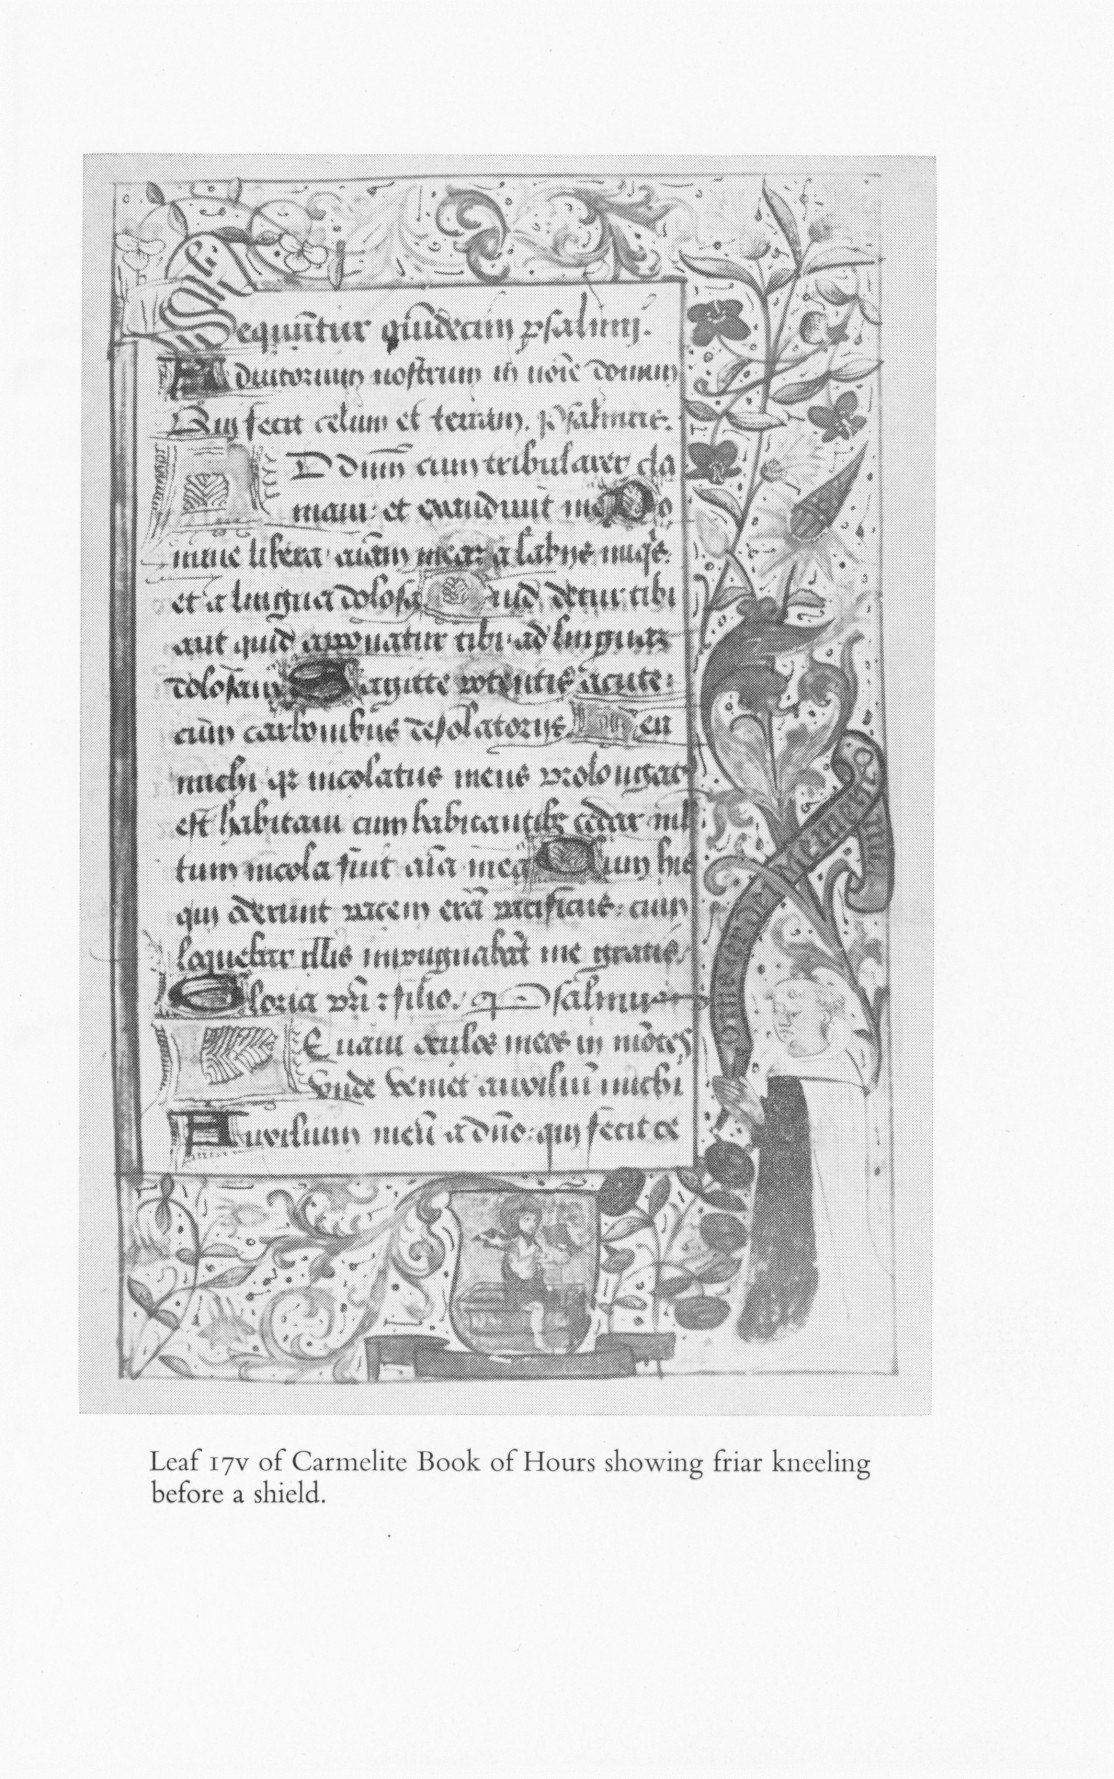 Sequūtur quidecim psalmi.
Adiutorium nostrum in noīe domini
Qui fecit celum et terram. Psalmus.
AD dnm̄ cum tribularer cla
maui: et exaudiuit me Do
mine libera aīam meam a labijs iniqꝭ:
et a lingua dolosa Quid detur tibi
aut quid apponatur tibi ad linguam
dolosam Sagitte potentis acute:
cum carbonibus desolatorijs. Heu
michi qꝛ incolatus meus prolongatꝰ
est habitaui cum habitantibꝫ cedar ml
tum incola fuit aīa mea Cum hiis
qui oderunt pacem erā pacificus: cum
loquebar illis inpugnabāt me gratis.
Gloria pr̄i ꝛ filio. Psalmus
Leuaui oculos meos in mōtes
vnde veniet auxiliū michi
Auxilium meū a dn̄o: qui fecit ce
Leaf 17v of Carmelite Book of Hours showing friar kneeling
before a shield.